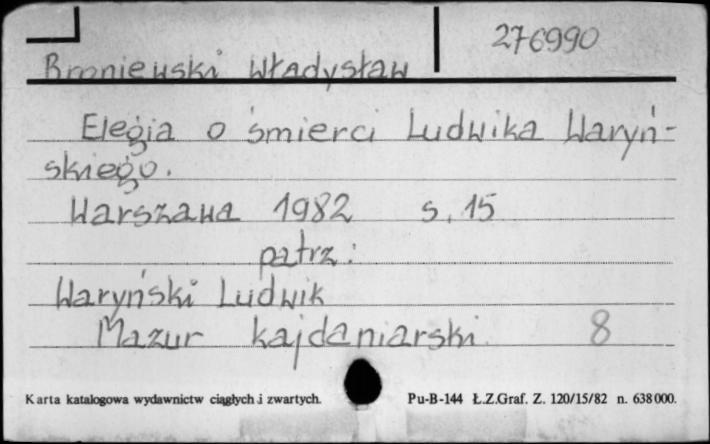 276990
Broniewski Władysław
Elegia o śmierci Ludwika Waryń-
skiego.
Warszawa 1982 s. 15
patrz:
Waryński Ludwik
Mazur kajdaniarski 8
Karta katalogowa wydawnictw ciągłych i zwartych. Pu-B-144 Ł.Z.Graf. Z. 120/15/82 n. 638000.